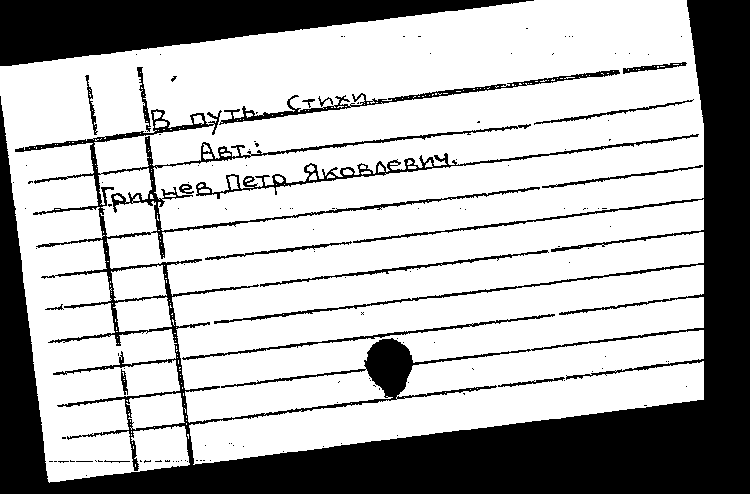 В путь. Стихи.
Авт.:
Гриднев, Петр Яковлевич.